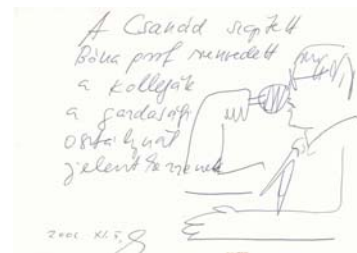 A Csanád
Bóna prof szenvedett
a kollegák
a gazdasági
osztálynál
jelentkezzenek
2001. XI. 5.